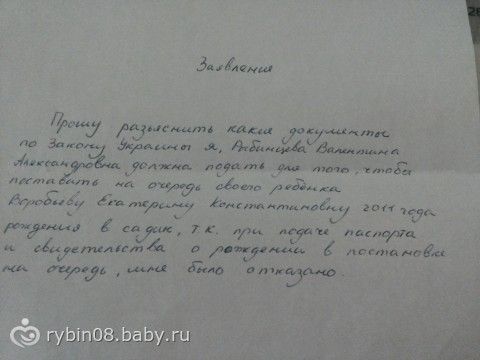 Заявление
Прошу разъяснить какие документы
по Закону Украины я, Рыбинцева Валентина
Александровна должна подать для того, чтобы
поставить на очередь своего ребёнка
Воробьеву Екатерину Константиновну 2011 года
рождения в садик, т.к. при подаче паспорта
и свидетельства о рождении в постановке
на очередь, мне было отказано.
rybin08.baby.ru